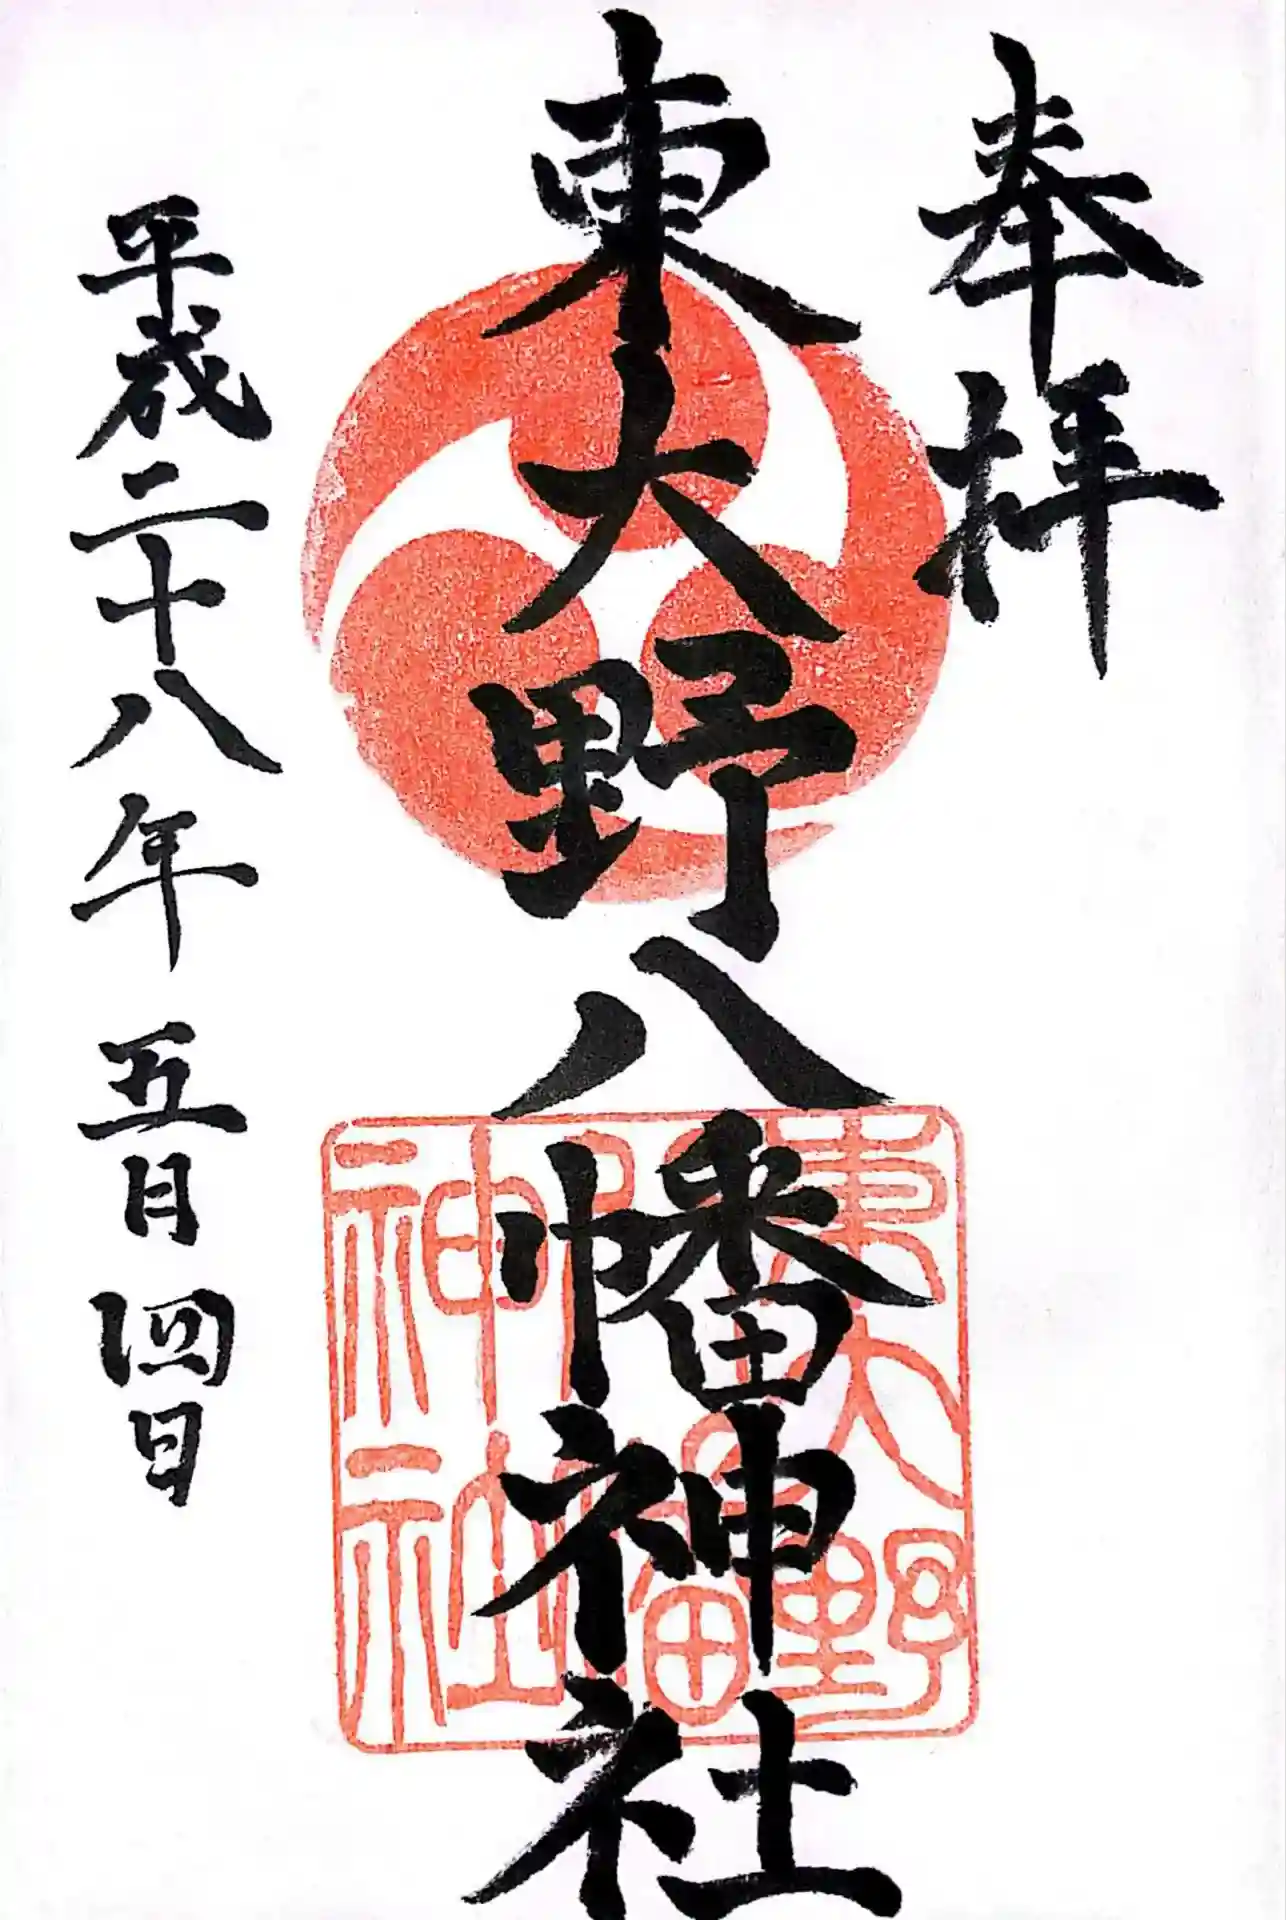 奉拝
東大野八幡神社
東大野
八幡
神社
平成二十八年五月四日